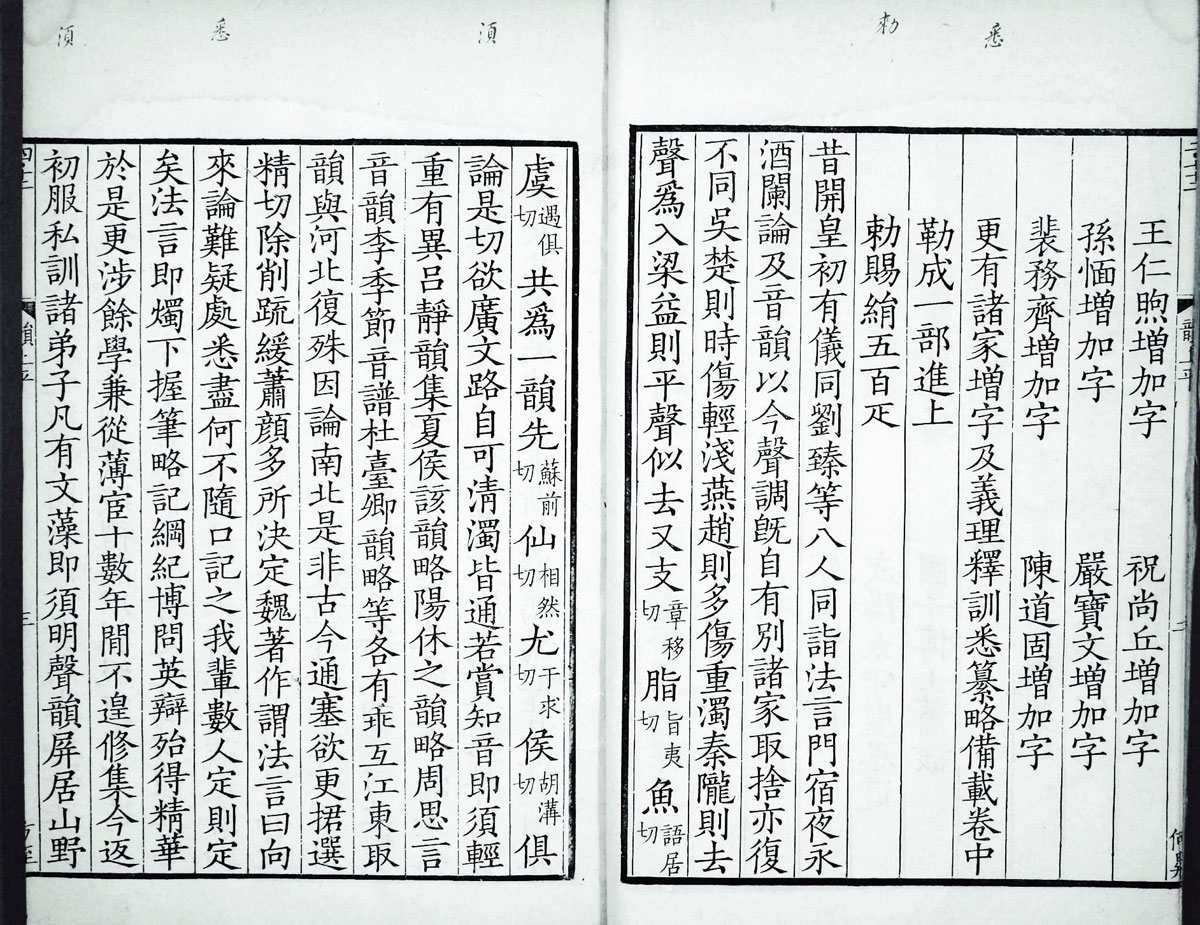 悉
勅
王仁煦增加字 祝尚丘增加字
孫愐增加字 嚴寶文增加字
裴務齊增加字 陳道固增加字
更有諸家增字及義理釋訓悉纂略備載卷中
勒成一部進上
勅賜絹五百疋
昔開皇初有儀同劉臻等八人同詣法言門宿夜永
酒闌論及音韻以今聲調旣自有別諸家取捨亦復
不同吳楚則時傷輕淺燕趙則多傷重濁秦隴則去
聲爲入梁益則平聲似去又支章移切脂旨夷切魚語居切
須
悉
須
虞遇俱切共爲一韻先蘇前切仙相然切尤于求切侯胡溝切俱
論是切欲廣文路自可淸濁皆通若賞知音卽須輕
重有異呂靜韻集夏侯該韻略陽休之韻略周思言
音韻李季節音譜杜臺卿韻略等各有乖互江東取
韻與河北復殊因論南北是非古今通塞欲更捃選
精切除削疏緩蕭顏多所決定魏著作謂法言曰向
來論難疑處悉盡何不隨口記之我輩數人定則定
矣法言卽燭下握筆略記綱紀博問英辯殆得精華
於是更涉餘學兼從薄宦十數年閒不遑修集今返
初服私訓諸弟子凡有文藻卽須明聲韻屏居山野
三